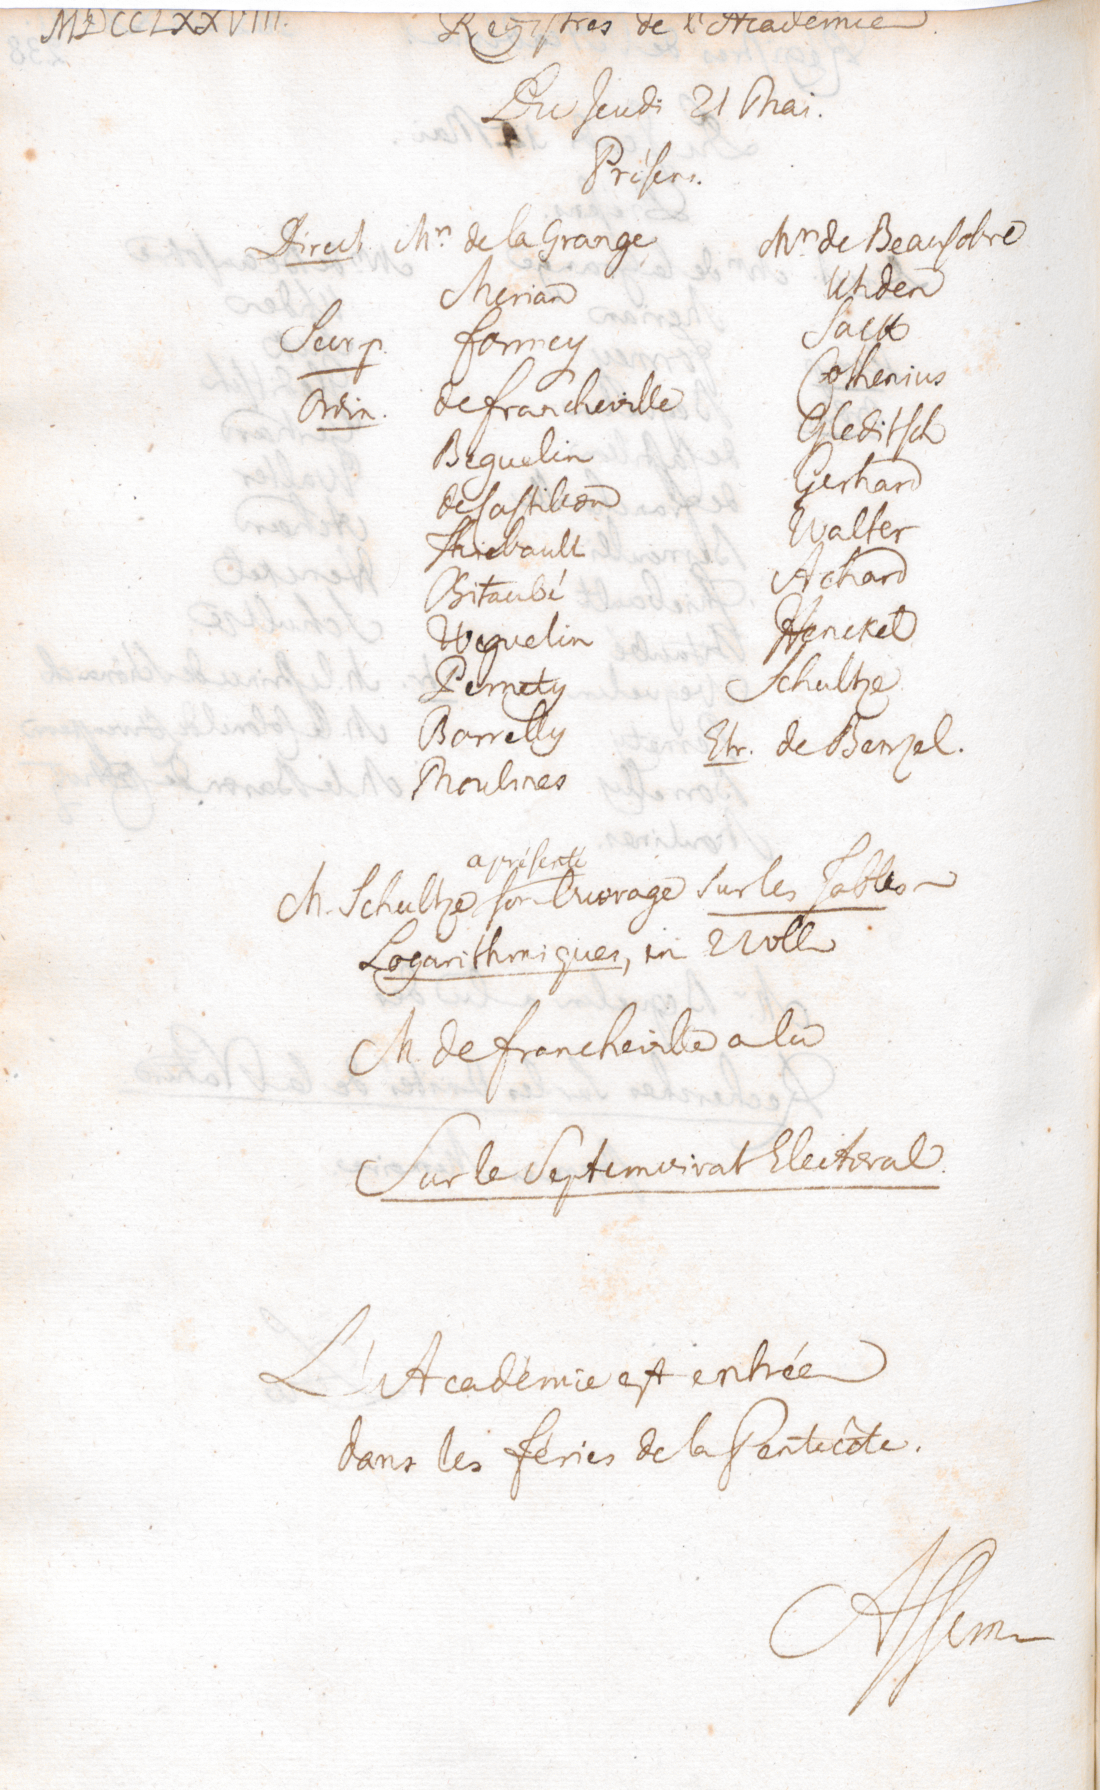 MDCCLXXVIII. Registres de l'Academie
Du Jeudi 21 Mai.
Présens.
Direct. Mrs de la Grange
Merian
Secr. p. Formey
Ordin. de Francheville
Beguelin
de Castilleon
Thiebault
Bitaubé
Weguelin
Pernety
Borrelly
Moulines
Mrs de Beausobre
Uhden
Sack
Cothenius
Gleditsch
Gerhard
Walter
Achard
Henckel
Schultze
Etr. de Benzel.
a présenté
M. Schultze son Ouvrage sur les Tables
Logarithmiques, in 2 voll
M. de Francheville a lu
Sur le Septemvirat Electoral.
L'Académie est entrée
dans les féries de la Pentecôte.